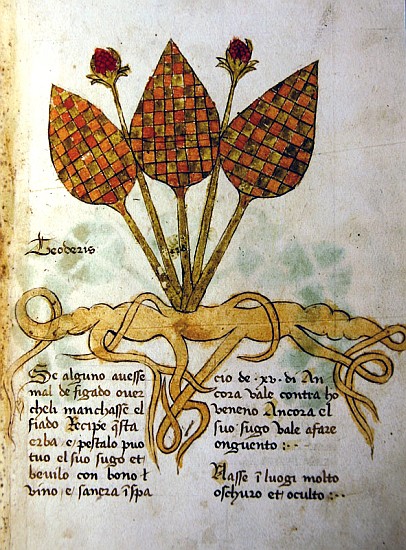 Leoderis
Se alguno avesse
mal de figado over
cheli manchasse el
fiado Recipe q̄sta
erba e pestalo puo
tuo el suo sugo et
bevilo con bono
vino e sanera ī spa
cio de · xv · di An
cora vale contra ho
veneno Ancora el
suo sugo vale afare
onguento :·
Nasse ī luogi molto
oschuro et oculto :·